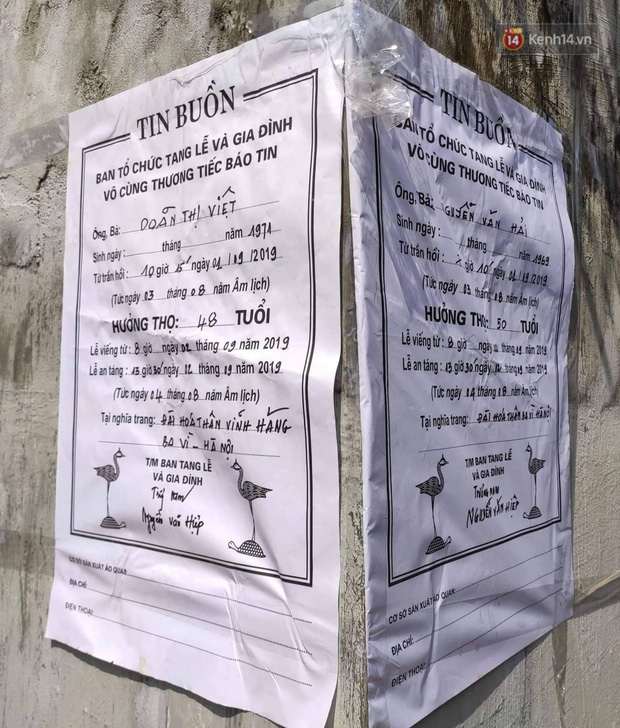 14 Kenh14.vn
TIN BUỒN
BAN TỔ CHỨC TANG LỄ VÀ GIA ĐÌNH
VÔ CÙNG THƯƠNG TIẾC BÁO TIN
Ông, Bà: DOÃN THỊ VIỆT
Sinh ngày: tháng năm 1971
Từ trần hồi: 10 giờ 15' ngày 01 / 09 / 2019
(Tức ngày 03 tháng 08 năm Âm lịch)
HƯỞNG THỌ: 48 TUỔI
Lễ viếng từ: 8 giờ ngày 02 09 năm 2019
Lễ an táng: 13 giờ 30 ngày 02 09 năm 2019
(Tức ngày 04 tháng 08 năm Âm lịch)
Tại nghĩa trang: ĐÀI HOÁ THÂN VĨNH HẰNG
BA VÌ - HÀ NỘI
T/M BAN TANG LỄ
VÀ GIA ĐÌNH
Nguyễn Văn Hiệp
CƠ SỞ SẢN XUẤT ÁO QUAN:
ĐỊA CHỈ:
ĐIỆN THOẠI:
TIN BUỒN
BAN TỔ CHỨC TANG LỄ VÀ GIA ĐÌNH
VÔ CÙNG THƯƠNG TIẾC BÁO TIN
Ông, Bà: NGUYỄN VĂN HẢI
Sinh ngày: tháng năm 1969
Từ trần hồi: giờ 10 ngày 01 / 09 / 2019
(Tức ngày 03 tháng 08 năm Âm lịch)
HƯỞNG THỌ: 50 TUỔI
Lễ viếng từ: 8 giờ ngày 09 năm 2019
Lễ an táng: 13 giờ 30 ngày 09 năm 2019
(Tức ngày 04 tháng 08 năm Âm lịch)
Tại nghĩa trang: ĐÀI HOÁ THÂN BA VÌ HÀ NỘI
T/M BAN TANG LỄ
VÀ GIA ĐÌNH
Trưởng nam
NGUYỄN VĂN HIỆP
CƠ SỞ SẢN XUẤT ÁO QUAN:
ĐỊA CHỈ:
ĐIỆN THOẠI: